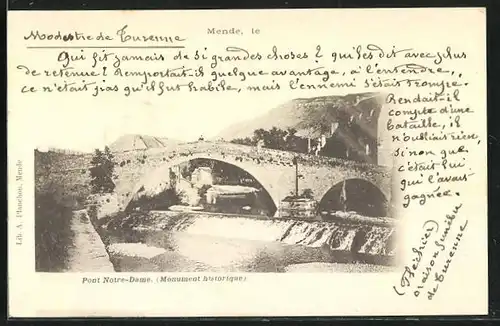 Modestie de Turenne
Mende, le
Qui fit jamais de si grandes choses ? qui les dit avec plus
de retenue ? Remportait-il quelque avantage, à l'entendre,
ce n'était pas qu'il fut habile, mais l'ennemi s'était trompé.
Rendait-il
compte d'une
bataille, il
n'oubliait rien,
si non que
c'était lui
qui l'avait
gagnée.
(Fléchier)
oraison funèbre
de Turenne
Lib. A. Planchon, Mende
Pont Notre-Dame. (Monument historique)